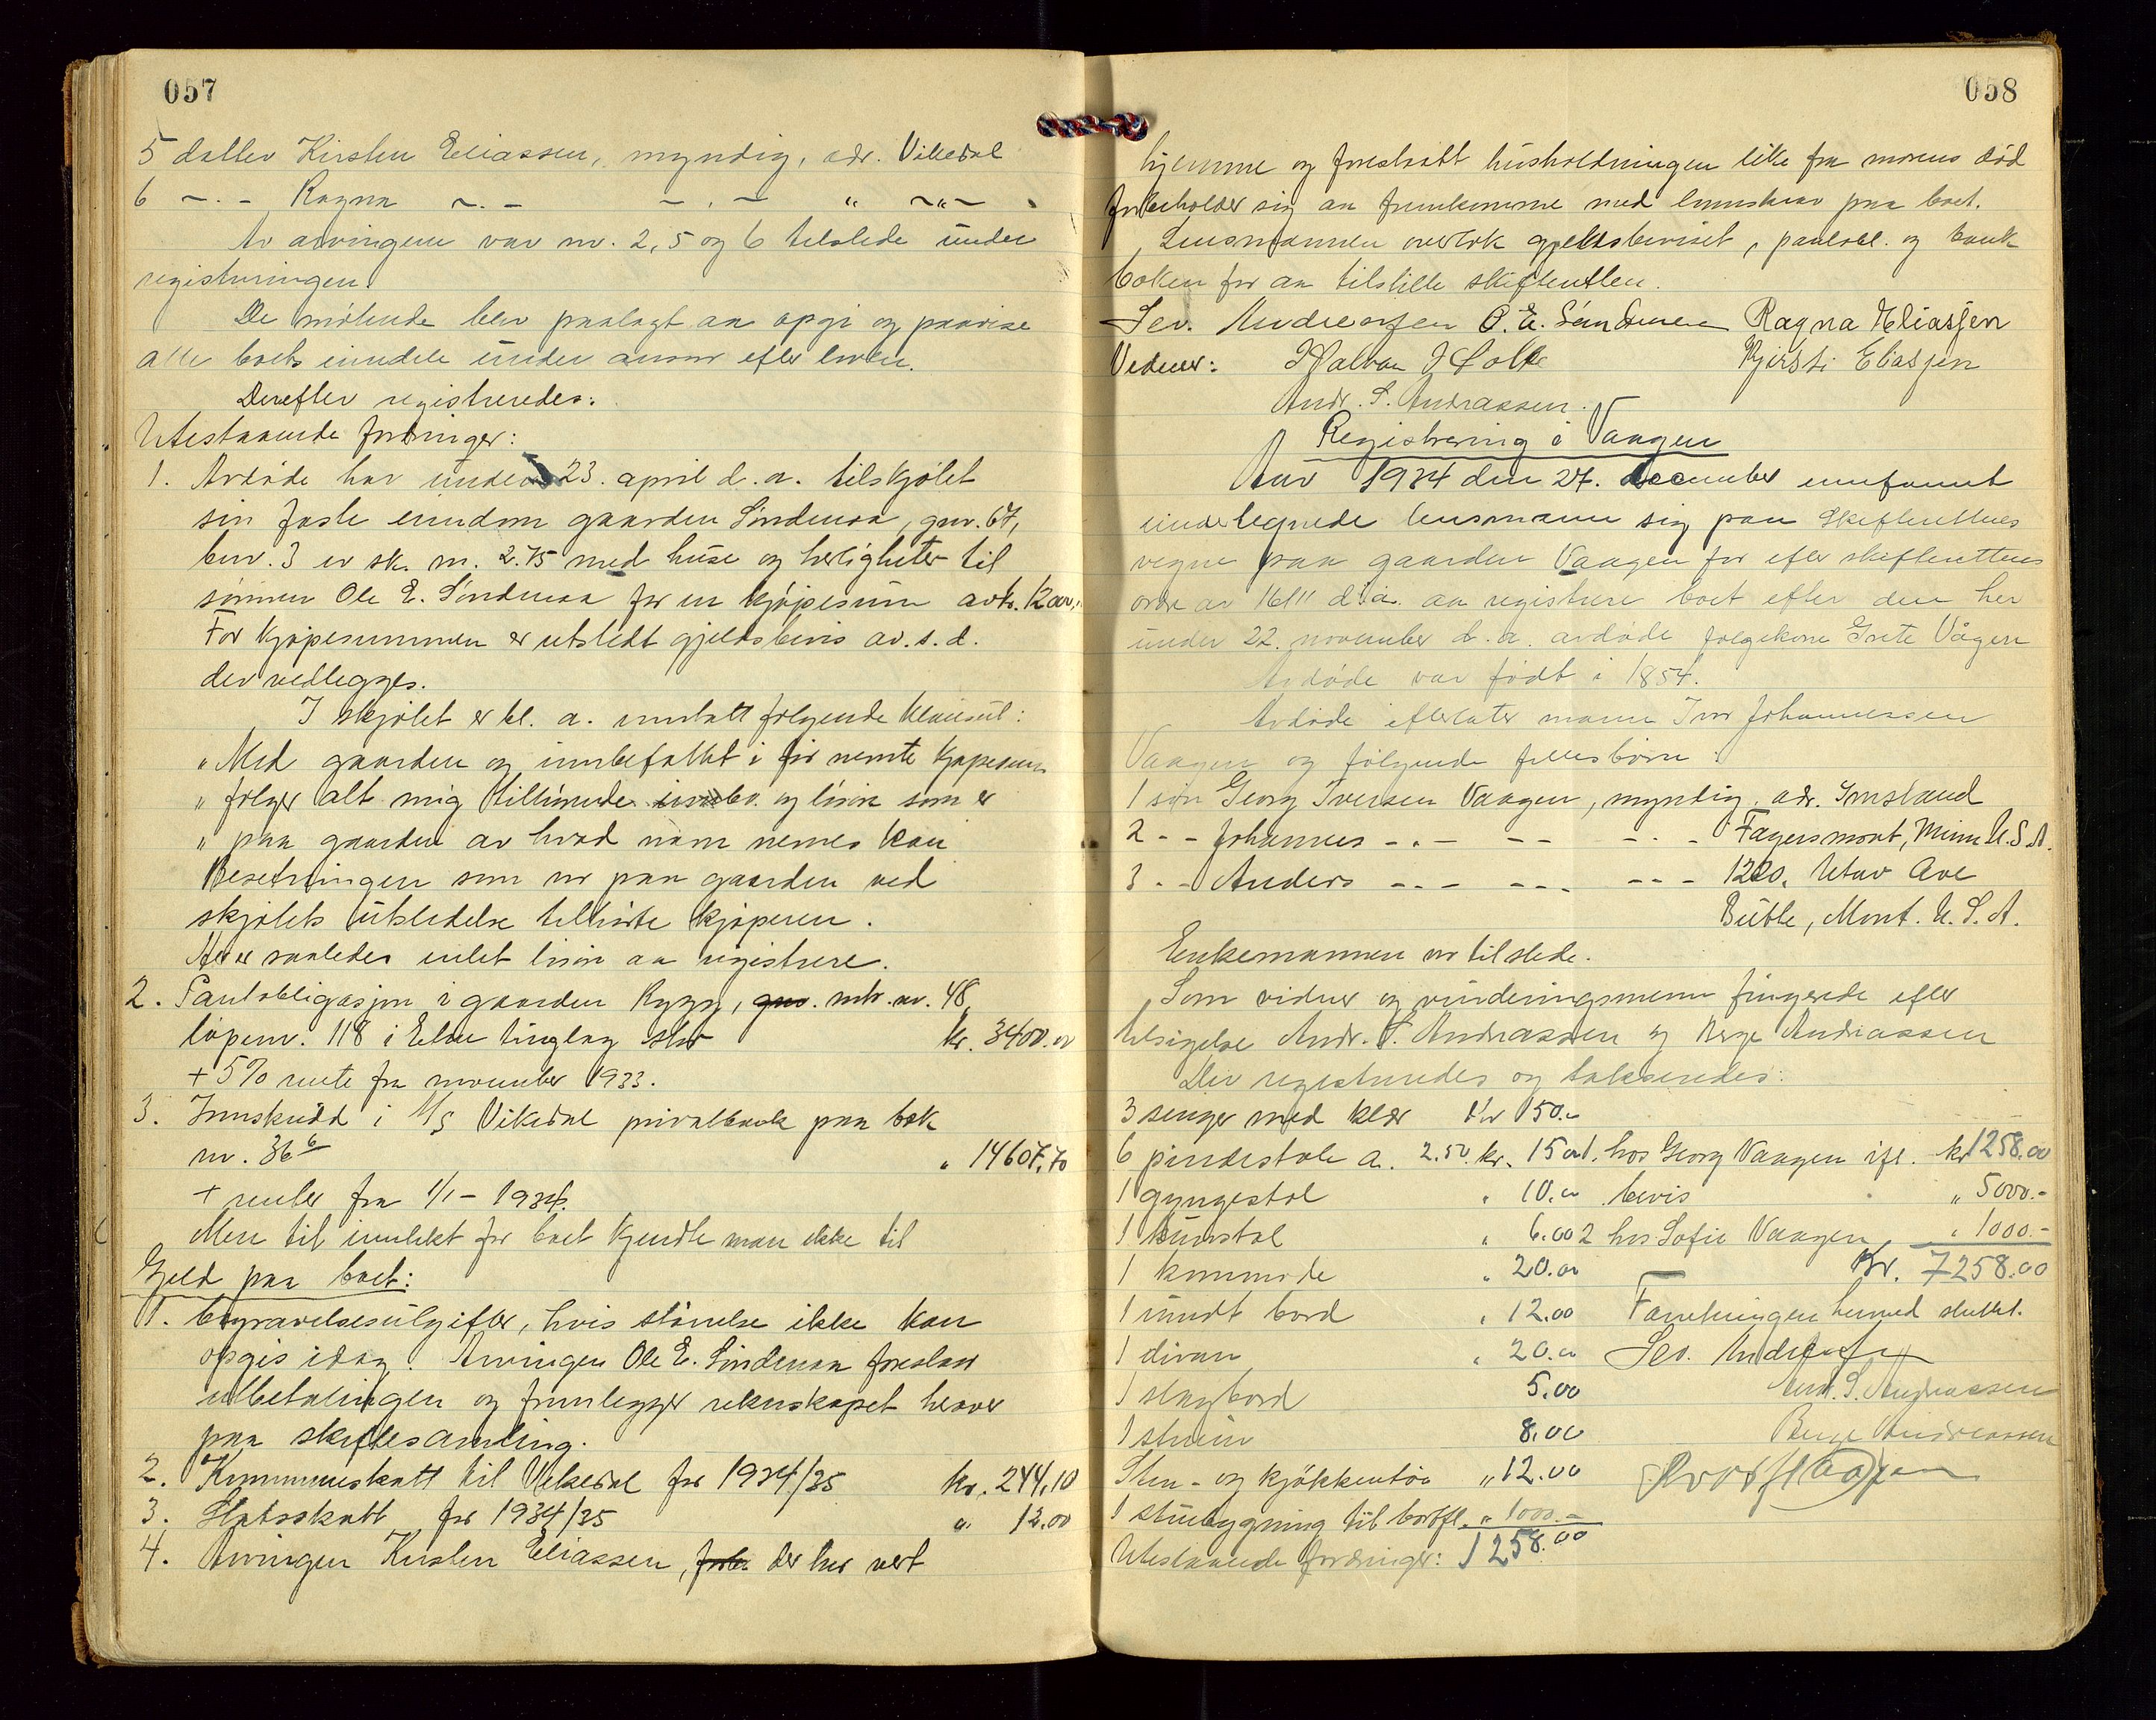 057
5 datter Kirsten Eliassen, myndig, adr. Vikedal
6 -.- Ragna -.- -.- " -"-
Av arvingene var nr. 2, 5 og 6 tilstede under
registreringen.
De møtende blev paalagt aa opgi og paavise
alle boets eiendele under ansvar efter loven.
Derefter registreredes:
Utestaaende fordringer:
1. Avdøde har under 23. april d.a. tilskjøtet
sin faste eiendom gaarden Søndenaa, gnr. 67,
bnr. 3 av sk. m. 2.75 med huse og herligheter til
sønnen Ole E. Søndenaa for en kjøpesum av kr.
For kjøpesummen er utstedt gjeldsbevis av s.d.
der vedlegges.
I skjøtet er bl. a. inntatt følgende klausul:
"Med gaarden og innbefattet i før nevnte kjøpesum
" følger alt mig tilhørende innbo og løsøre som er
" paa gaarden av hvad navn nevnes kan
Besetningen som var paa gaarden ved
skjøtets utstedelse tilhørte kjøperen.
Her er saaledes intet løsøre aa registrere.
2. Pantobligasjon i gaarden Rygg, gnr. mtr. nr. 48,
løpenr. 118 i Elne tinglag stor kr. 3400.00
+ 5% rente fra november 1933.
3. Innskudd i A/S Vikedal privatbank paa bok
nr. 366 " 14607,70
+ renter fra 1/1 - 1934.
Mere til inntekt for boet kjendte man ikke til
Gjeld paa boet:
1. begravelsesutgifter, hvis størrelse ikke kan
opgis idag. Arvingen Ole E. Søndenaa forestaar
utbetalingen og fremlegger rekneskapet herover
paa skiftesamling.
2. Kommuneskatt til Vikedal for 1934/35 kr. 244,10
3. Statsskatt for 1934/35 " 12.00
4. Arvingen Kirsten Eliassen, der har vert
058
hjemme og forestaatt husholdningen like fra morens død
forbeholder sig aa fremkomme med lønnskrav paa boet.
Lensmannen overtok gjeldsbeviset, pantobl. og bank
boken for aa tilstille skifteretten.
Sev. Andreassen O. E. Søndenaa Ragna Eliassen
Vidner: Halvor Kjersti Eliassen
Andr. S. Andreassen.
Registrering i Vaagen
Aar 1934 den 27. december innfannt
undertegnede lensmann sig paa skifterettens
vegne paa gaarden Vaagen for efter skifterettens
ordre av 16/11 d.a. aa registrere boet efter den her
under 22. november d.a. avdøde folgekone Grete Vågen
Avdøde var født i 1854.
Avdøde efterlater mann Iver Johannessen
Vaagen og følgende fellesbørn:
1 søn Georg Iversen Vaagen, myndig, adr. Imsland
2 - - Johannes -.- -- -.- Fagersmont, Minn U.S.A.
3 - - Anders -.- --- --- 1220. Utav Ave
Butte, Mont. U.S.A.
Enkemannen var tilstede.
Som vidner og vurderingsmenn fungerede efter
tilsigelse Andr. S. Andreassen og Berge Andreassen
Der registreredes og takseredes:
3 senger med klær kr 150.-
6 pindestole a. 2.50. kr. 15.00 1. hos Georg Vaagen ifl. kr 1258.00
1 gyngestol " 10.00 bevis " 5000.-
1 kurvstol " 6.00 2 hos Sofie Vaagen " 1000.-
1 kommode " 20.00 Kr. 7258.00
1 rundt bord " 12.00 Forretningen hermed sluttet.
1 divan " 20.00 Sev. Andreassen
1 slagbord 5.00 Andr. S. Andreassen
1 skrin 8.00 Berge Andreassen
Sten- og kjøkkentøi " 12.00
1 stuebygning til bortfl. " 1000.-
Utestaaende fordringer: 1258.00